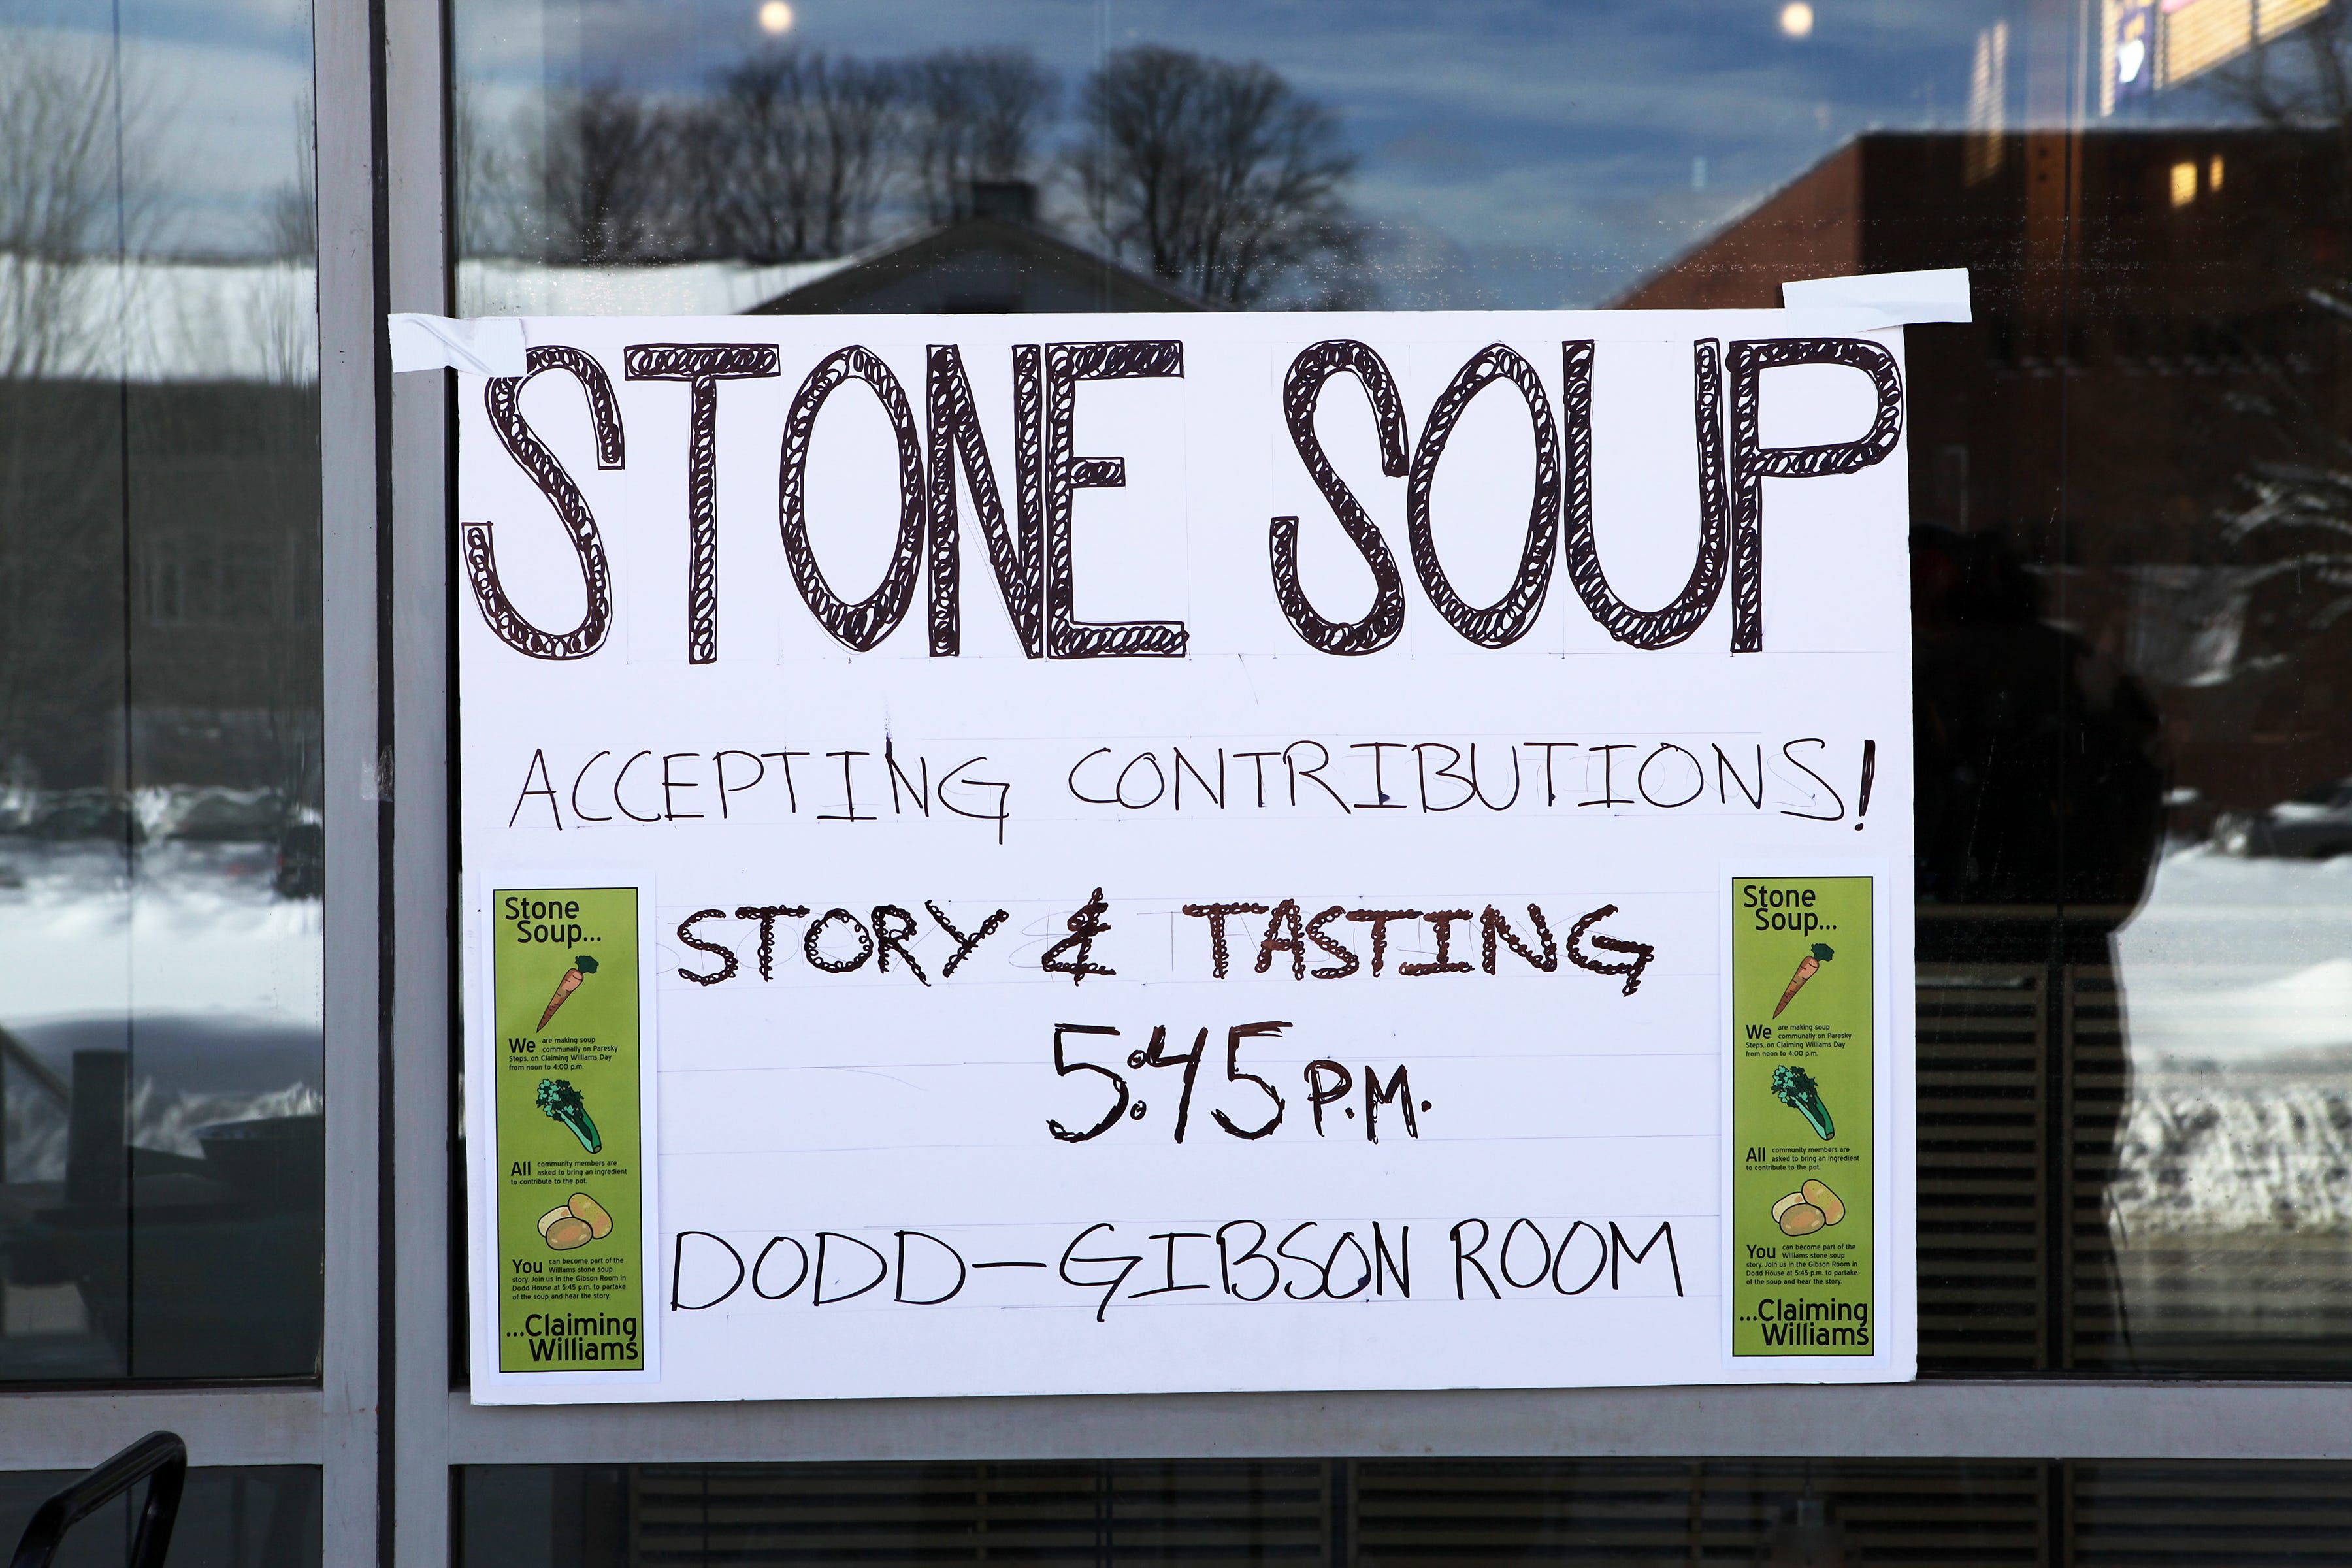 STONE SOUP
ACCEPTING CONTRIBUTIONS!
STORY & TASTING
5:45 P.M.
DODD-GIBSON ROOM
Stone
Soup...
We are making soup
communally on Paresky
Steps, on Claiming Williams Day
from noon to 4:00 p.m.
All community members are
asked to bring an ingredient
to contribute to the pot.
You can become part of the
Williams stone soup
story. Join us in the Gibson Room in
Dodd House at 5:45 p.m. to partake
of the soup and hear the story.
...Claiming
Williams
Stone
Soup...
We are making soup
communally on Paresky
Steps, on Claiming Williams Day
from noon to 4:00 p.m.
All community members are
asked to bring an ingredient
to contribute to the pot.
You can become part of the
Williams stone soup
story. Join us in the Gibson Room in
Dodd House at 5:45 p.m. to partake
of the soup and hear the story.
...Claiming
Williams